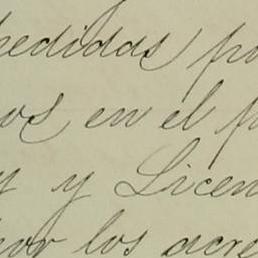 pedidas po
os en el p
y y Licen
por los acre